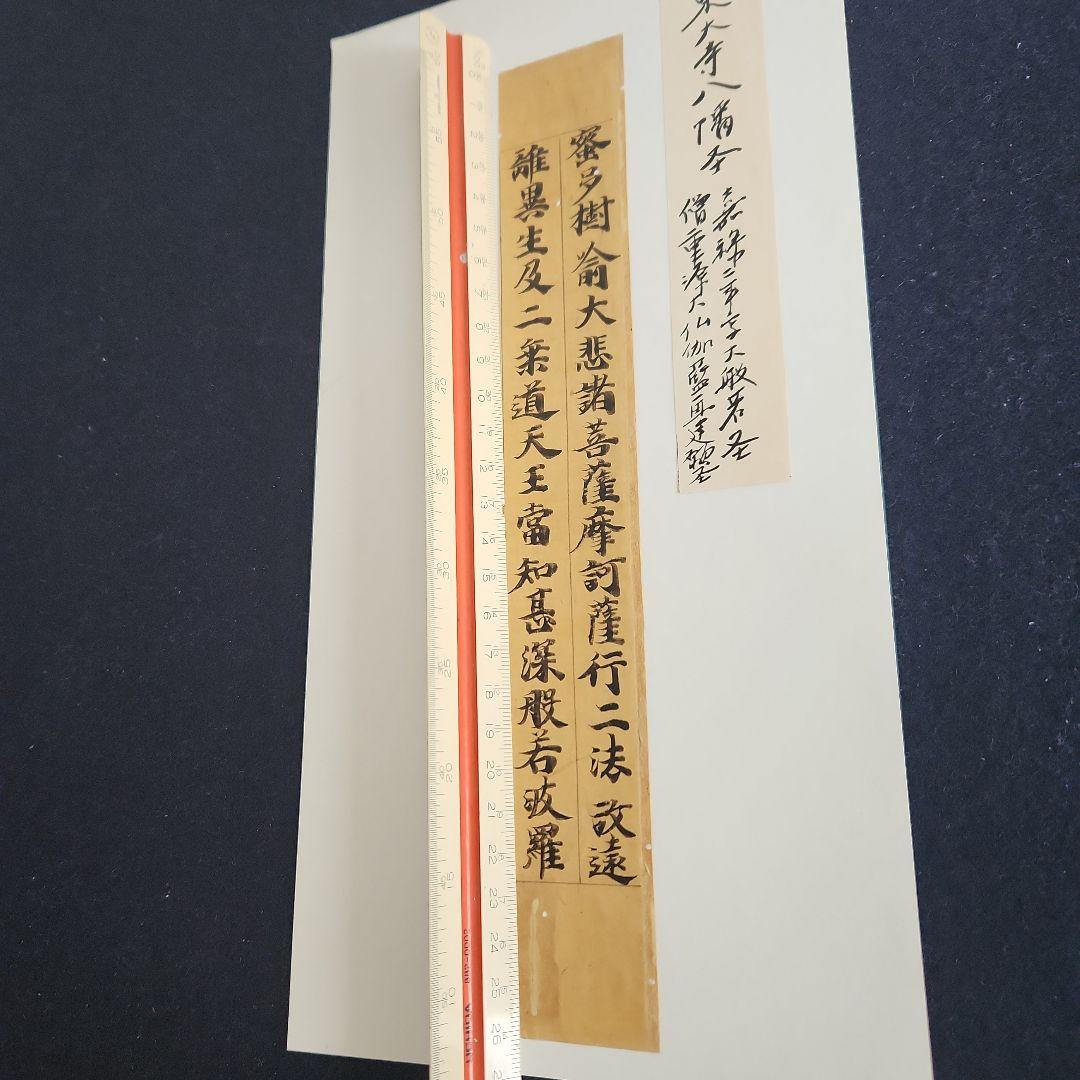 東大寺八幡圣
嘉禄二年写大般若圣
僧重源大仏伽藍再建願圣
蜜多樹喻大悲諸菩薩摩訶薩行二法故遠
離異生及二乘道天王當知甚深般若波羅